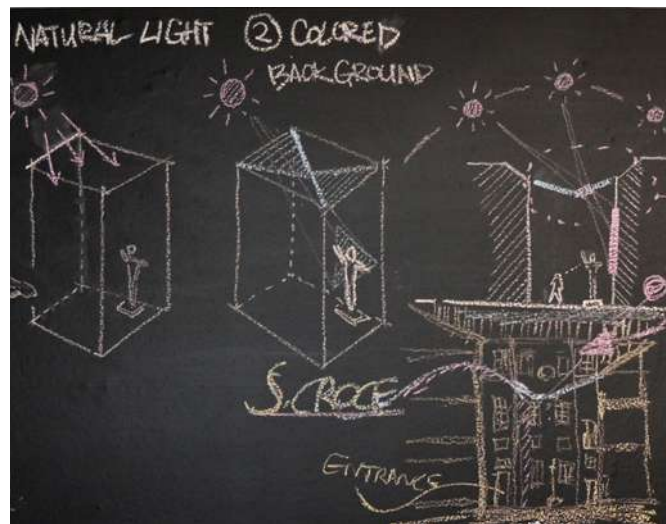 NATURAL LIGHT ② COLORED
BACKGROUND
S. CROCE
ENTRANCE